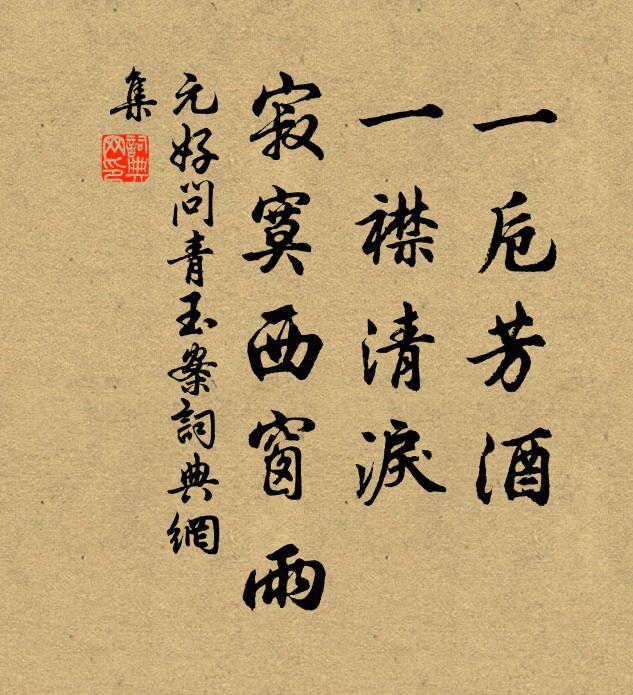 一卮芳酒
一襟清淚
寂寞西窗雨
元好问青玉案詞典網
集
詞典網印